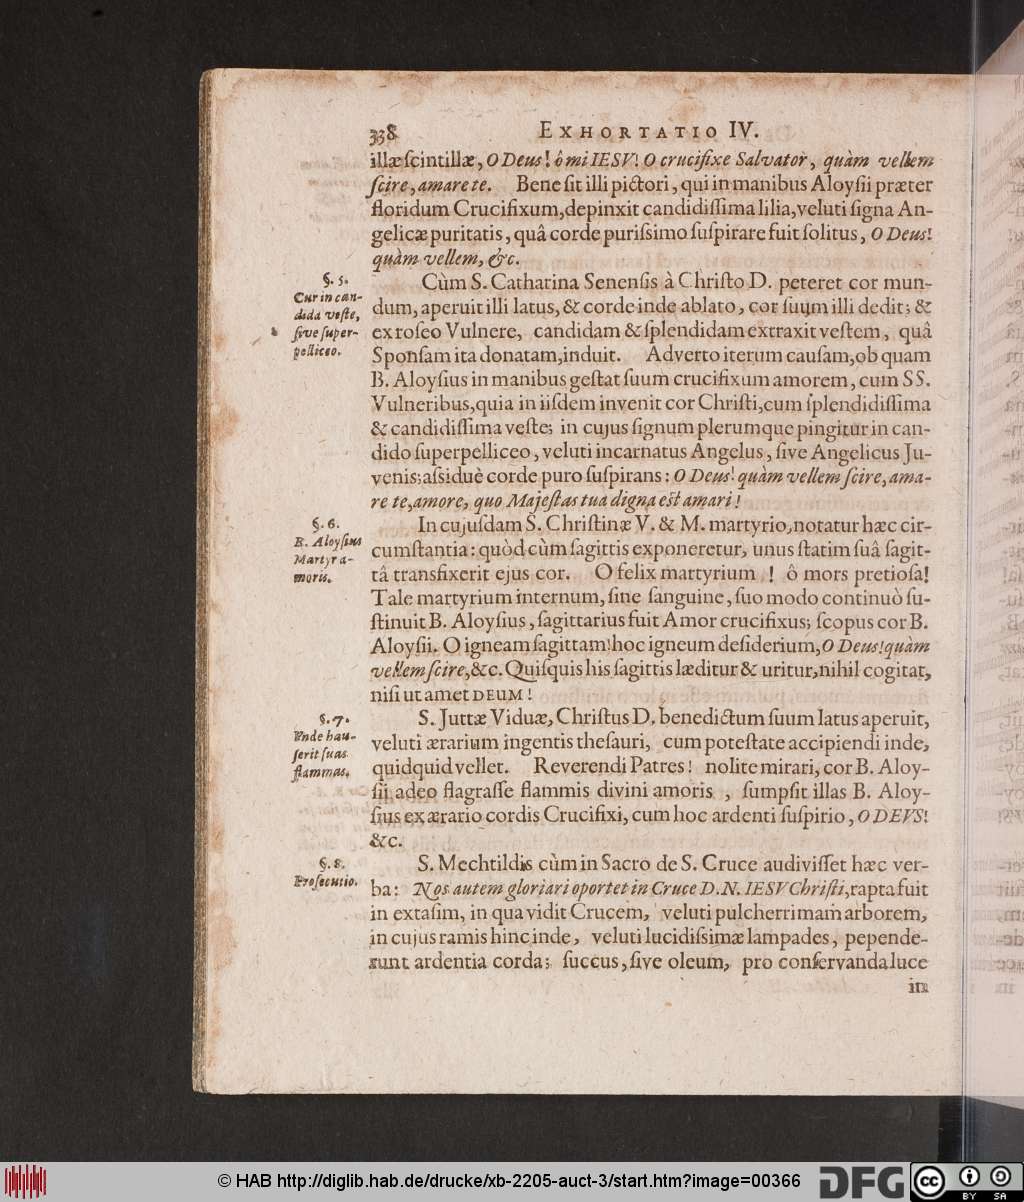 338 EXHORTATIO IV.
illæ ſcintillæ, O Deus! ô mi IESV! O crucifixe Salvator, quàm vellem
ſcire, amare te. Bene ſit illi pictori, qui in manibus Aloyſii præter
floridum Crucifixum, depinxit candidiſſima lilia, veluti ſigna An-
gelicæ puritatis, quâ corde puriſsimo ſuſpirare fuit ſolitus, O Deus!
quàm vellem, &c.
§. 5.
Cur in can-
dida veſte,
ſive ſuper-
pelliceo.
Cùm S. Catharina Senenſis à Chriſto D. peteret cor mun-
dum, aperuit illi latus, & corde inde ablato, cor ſuum illi dedit; &
ex roſeo Vulnere, candidam & ſplendidam extraxit veſtem, quâ
Sponſam ita donatam, induit. Adverto iterum cauſam, ob quam
B. Aloyſius in manibus geſtat ſuum crucifixum amorem, cum SS.
Vulneribus, quia in iiſdem invenit cor Chriſti, cum ſplendidiſſima
& candidiſſima veſte; in cujus ſignum plerumque pingitur in can-
dido ſuperpelliceo, veluti incarnatus Angelus, ſive Angelicus Ju-
venis; aſsiduè corde puro ſuſpirans: O Deus! quàm vellem ſcire, ama-
re te, amore, quo Majeſtas tua digna eſt amari!
§. 6.
B. Aloyſius
Martyr a-
moris.
In cujuſdam S. Chriſtinæ V. & M. martyrio, notatur hæc cir-
cumſtantia: quòd cùm ſagittis exponeretur, unus ſtatim ſuâ ſagit-
tâ transfixerit ejus cor. O felix martyrium! ô mors pretioſa!
Tale martyrium internum, ſine ſanguine, ſuo modo continuò ſu-
ſtinuit B. Aloyſius, ſagittarius fuit Amor crucifixus; ſcopus cor B.
Aloyſii. O igneam ſagittam! hoc igneum deſiderium, O Deus! quàm
vellem ſcire, &c. Quiſquis his ſagittis læditur & uritur, nihil cogitat,
niſi ut amet DEUM!
§. 7.
Vnde hau-
ſerit ſuas
flammas.
S. Juttæ Viduæ, Chriſtus D. benedictum ſuum latus aperuit,
veluti ærarium ingentis theſauri, cum poteſtate accipiendi inde,
quidquid vellet. Reverendi Patres! nolite mirari, cor B. Aloy-
ſii adeo flagraſſe flammis divini amoris, ſumpſit illas B. Aloy-
ſius ex ærario cordis Crucifixi, cum hoc ardenti ſuſpirio, O DEVS!
&c.
§. 8.
Proſecutio.
S. Mechtildis cùm in Sacro de S. Cruce audiviſſet hæc ver-
ba: Nos autem gloriari oportet in Cruce D. N. IESV Chriſti, rapta fuit
in extaſim, in qua vidit Crucem, veluti pulcherrimam arborem,
in cujus ramis hinc inde, veluti lucidiſsimæ lampades, pepende-
runt ardentia corda; ſuccus, ſive oleum, pro conſervanda luce
in
© HAB http://diglib.hab.de/drucke/xb-2205-auct-3/start.htm?image=00366
DFG
cc BY SA